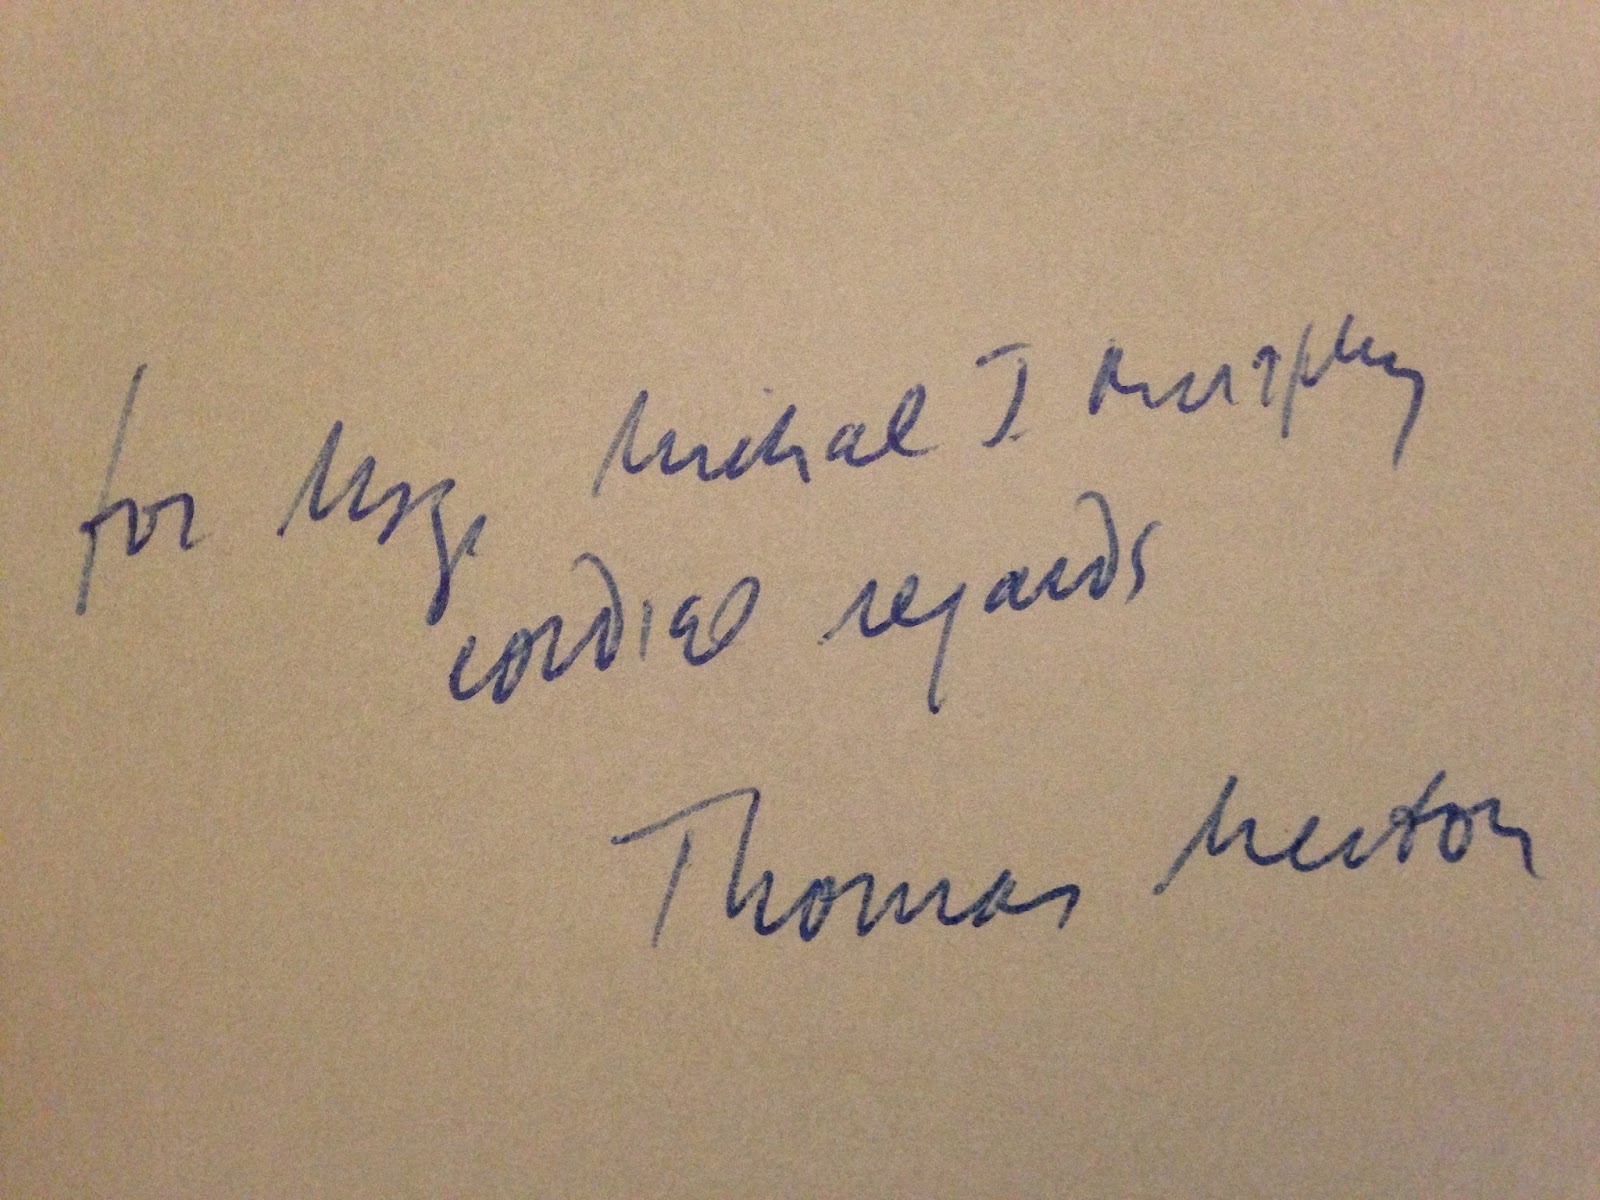 for Msgr Michael J Murphy
cordial regards
Thomas Merton